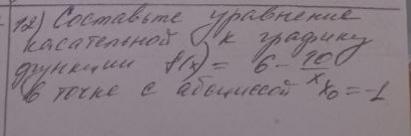 12) Составьте уравнение
касательной к графику
функции f(x) = 6 - 10/x
в точке с абсциссой x₀ = -1